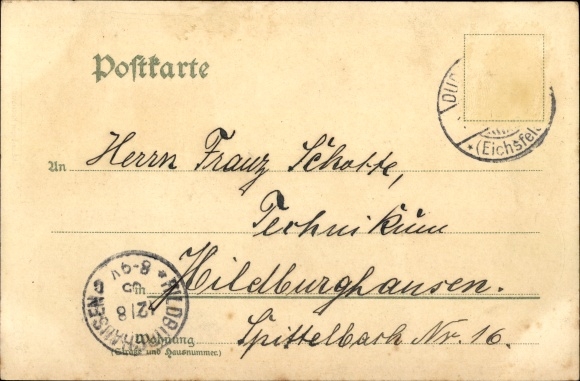 Postkarte
(Eichsfel
An Herrn Franz Schotte,
Technikum
Hildburghausen.
Spittelbach Nr. 16.
Wohnung
(Straße und Hausnummer.)
HILDBURGHAUSEN
8-9V